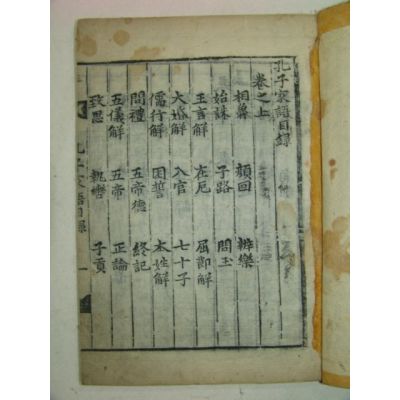 孔子家語目錄
卷之上
相魯 顔回 辨樂
始誅 子路 問玉
王言解 在厄 屈節解
大婚解 入官 七十子
儒行解 困誓 本姓解
問禮 五帝德 終記
五儀解 五帝 正論
致思 執轡 子貢
孔子家語目錄 一